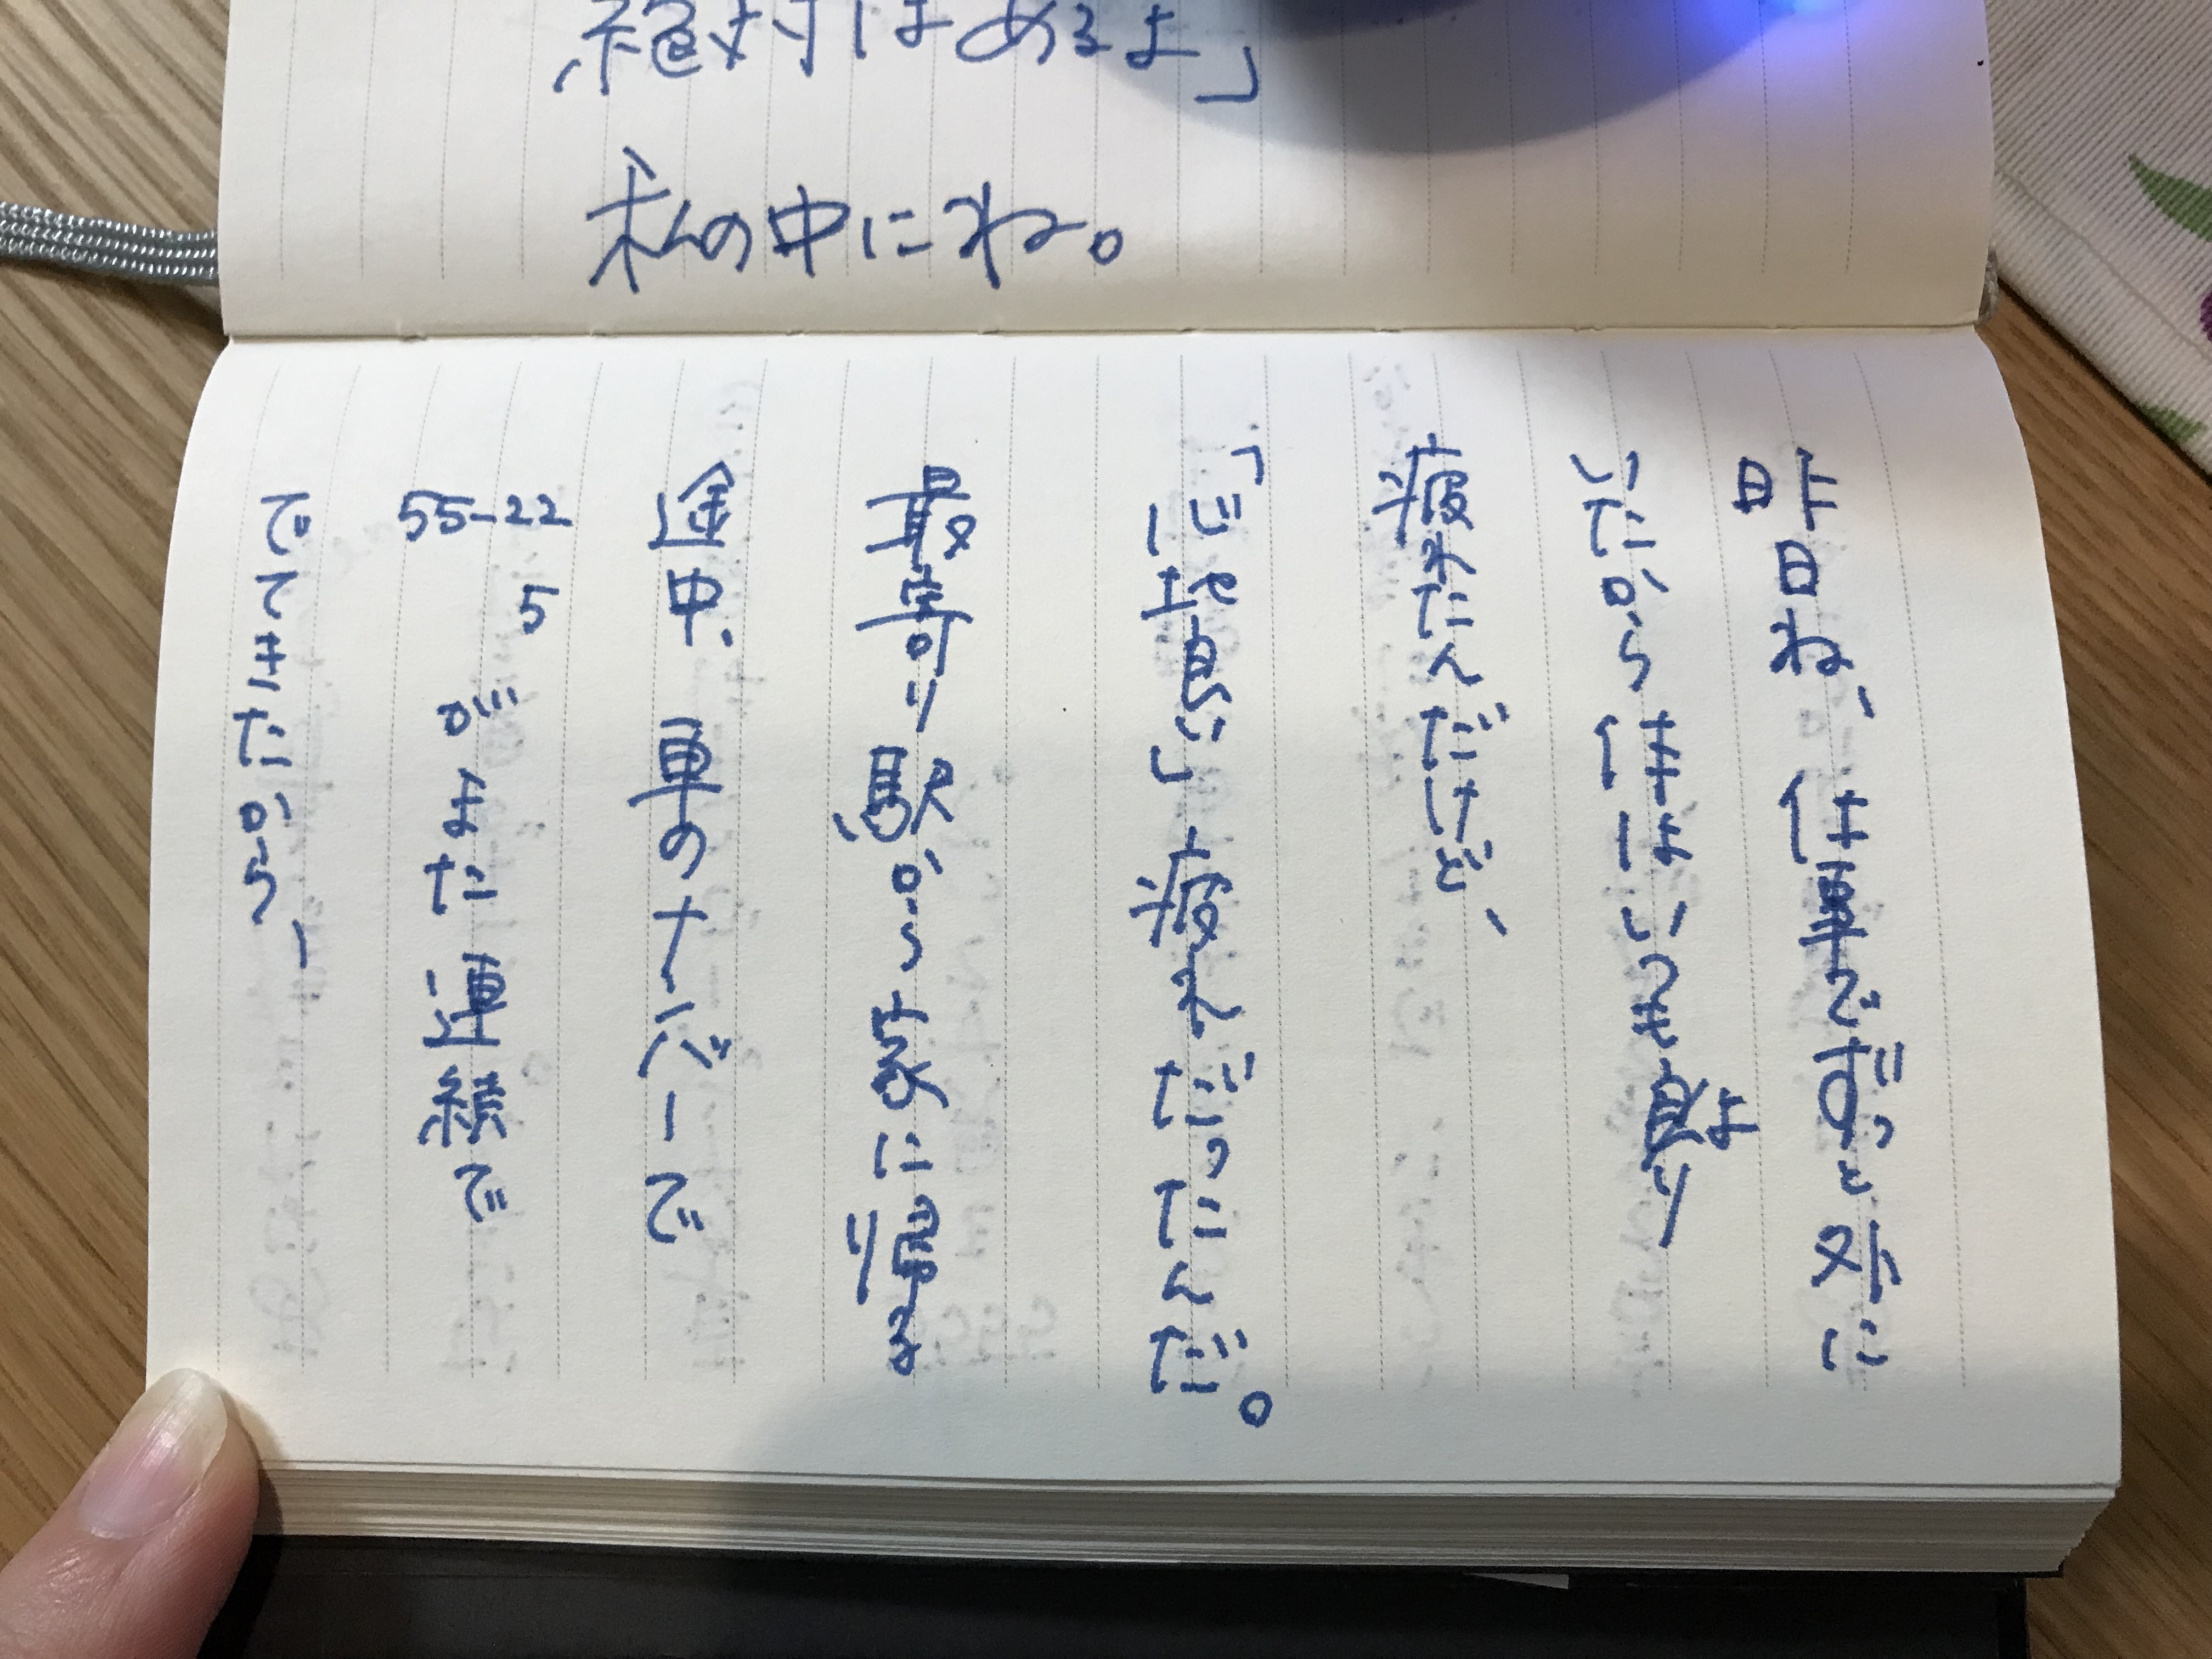 絶対はあるよ」
私の中にね。
昨日ね、仕事でずっと外に
いたから体はいつも良より
疲れたんだけど、
「心地良い」疲れだったんだ。
最寄り駅から家に帰る
途中、車のナンバーで
55-22
5
がまた連続で
でてきたから、